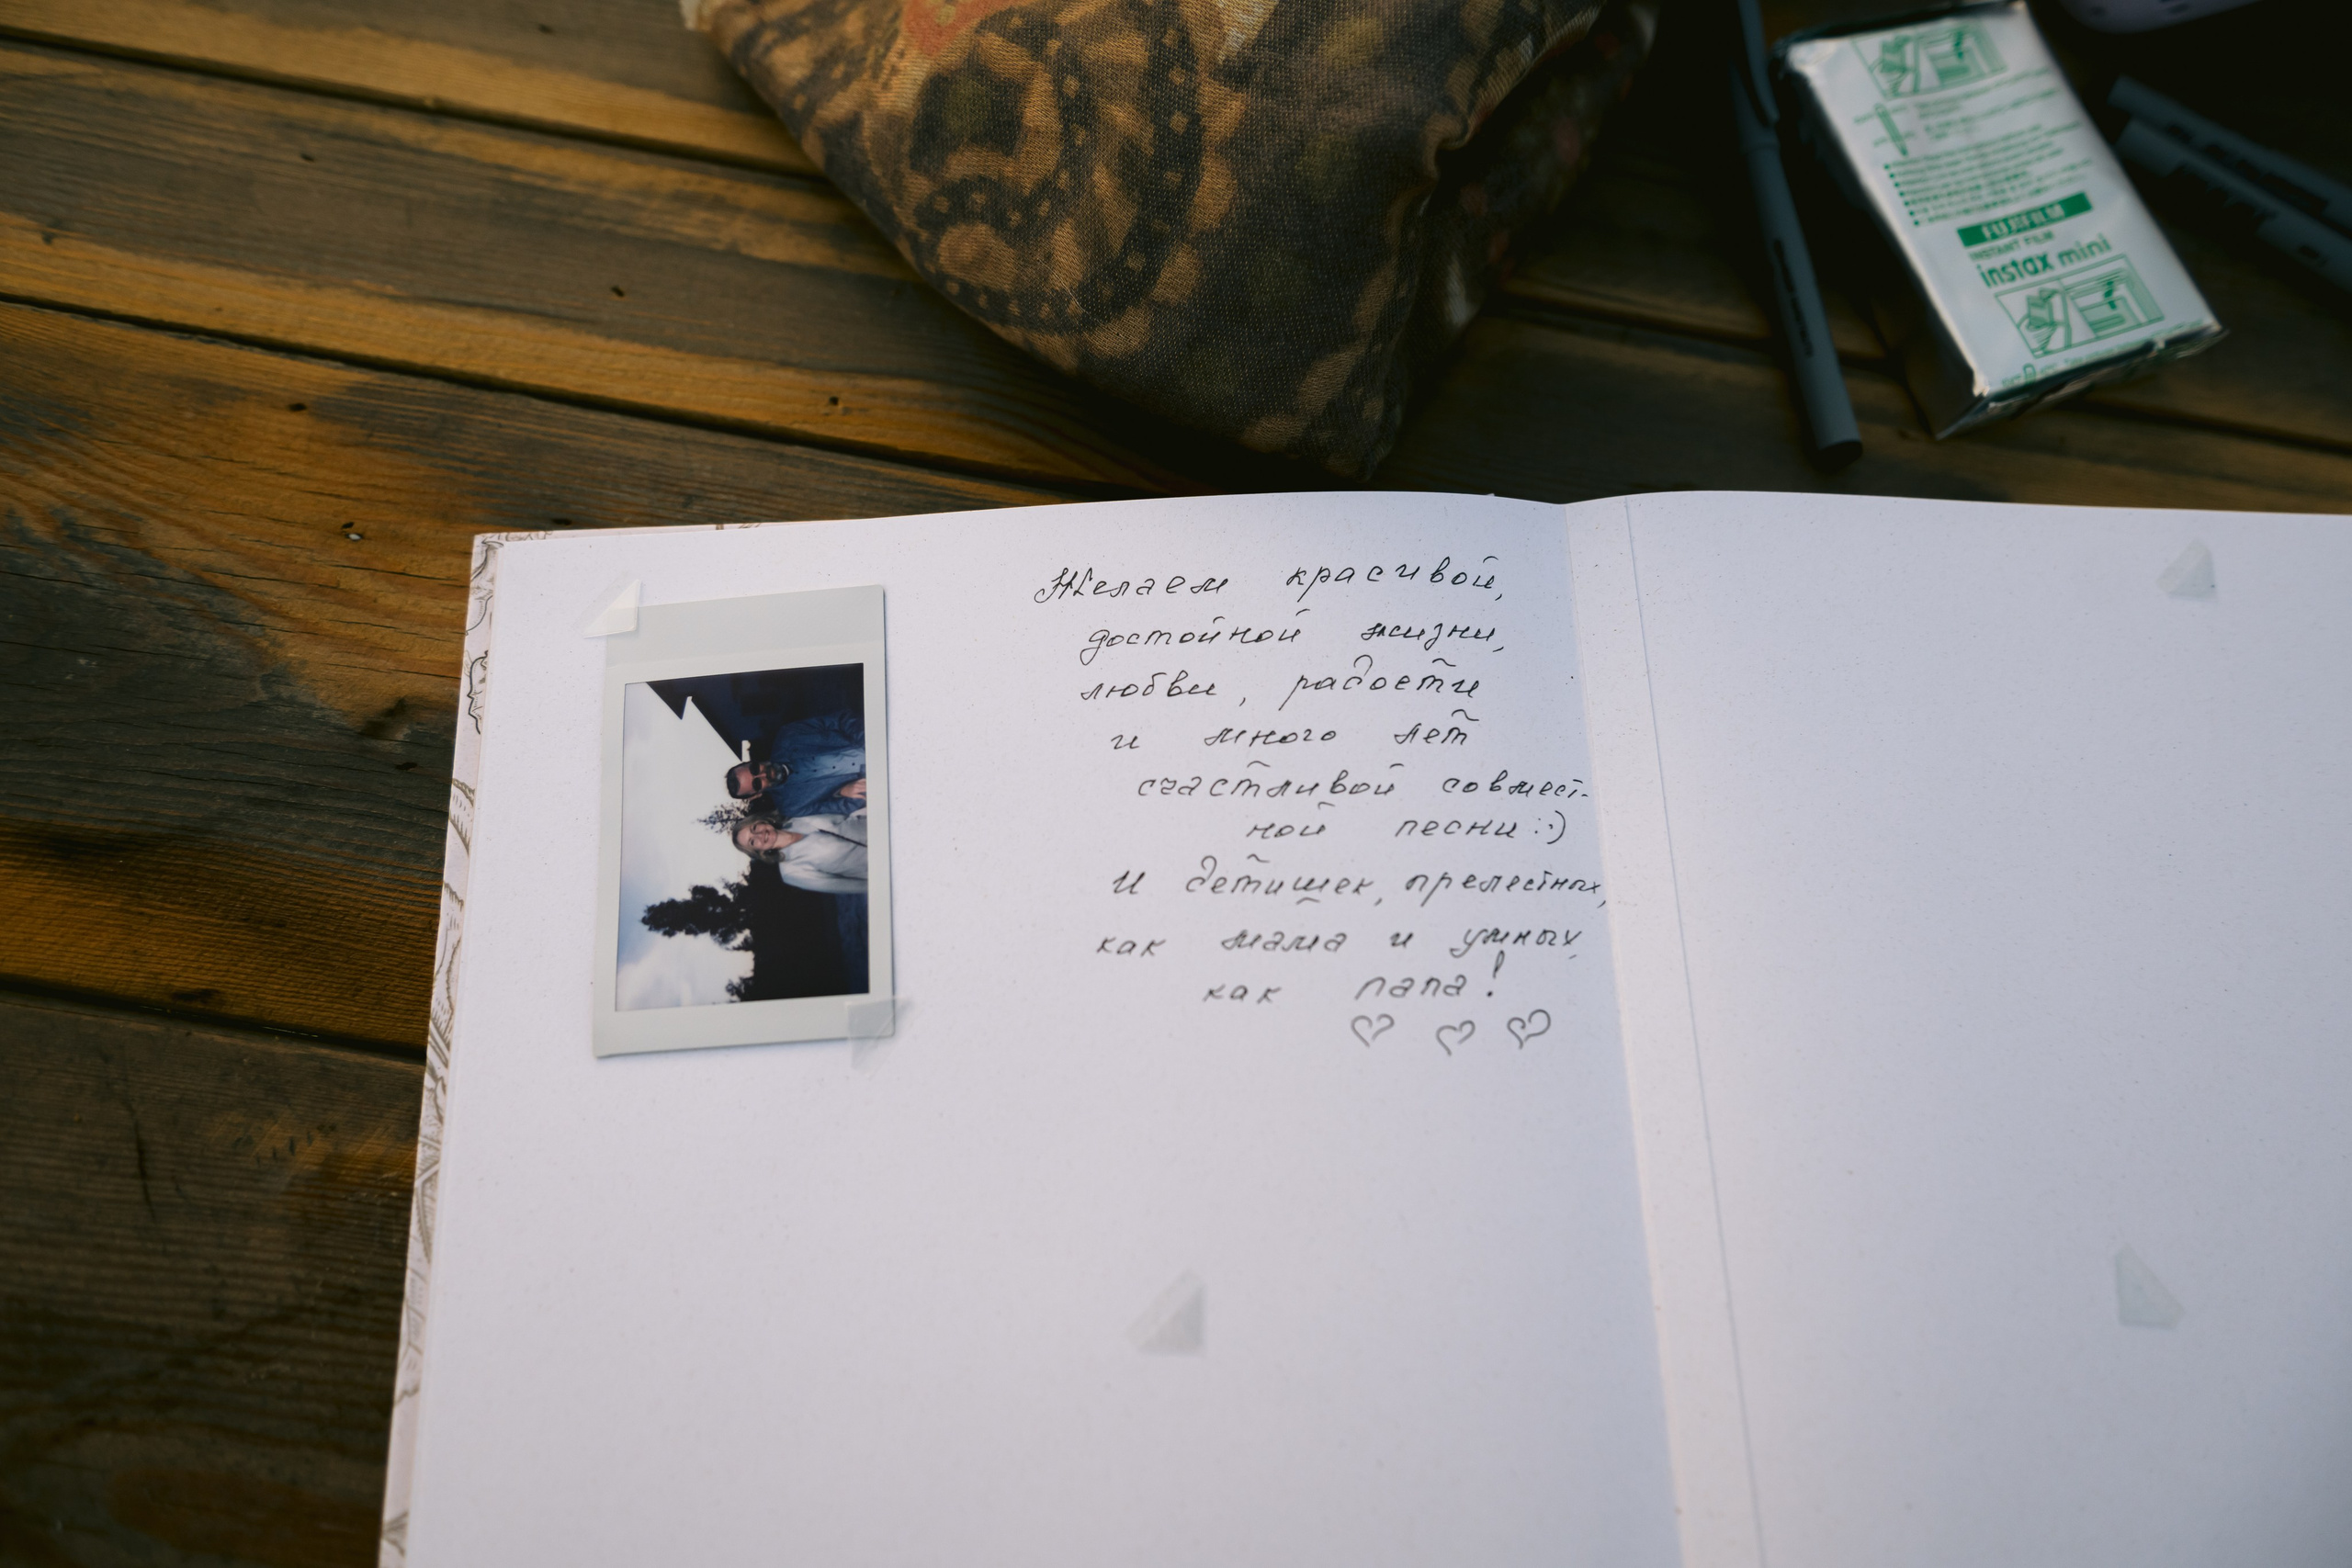 FUJIFILM
INSTANT FILM
instax mini
Желаем красивой,
достойной жизни,
любви, радости
и много лет
счастливой совмест-
ной песни :)
И детишек, прелестных,
как мама и умных,
как папа!